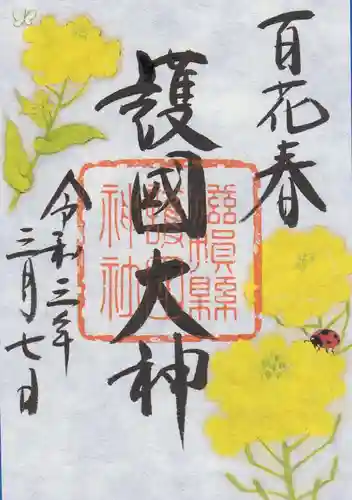 百花春
護國大神
滋賀縣
護國
神社
令和三年
三月七日